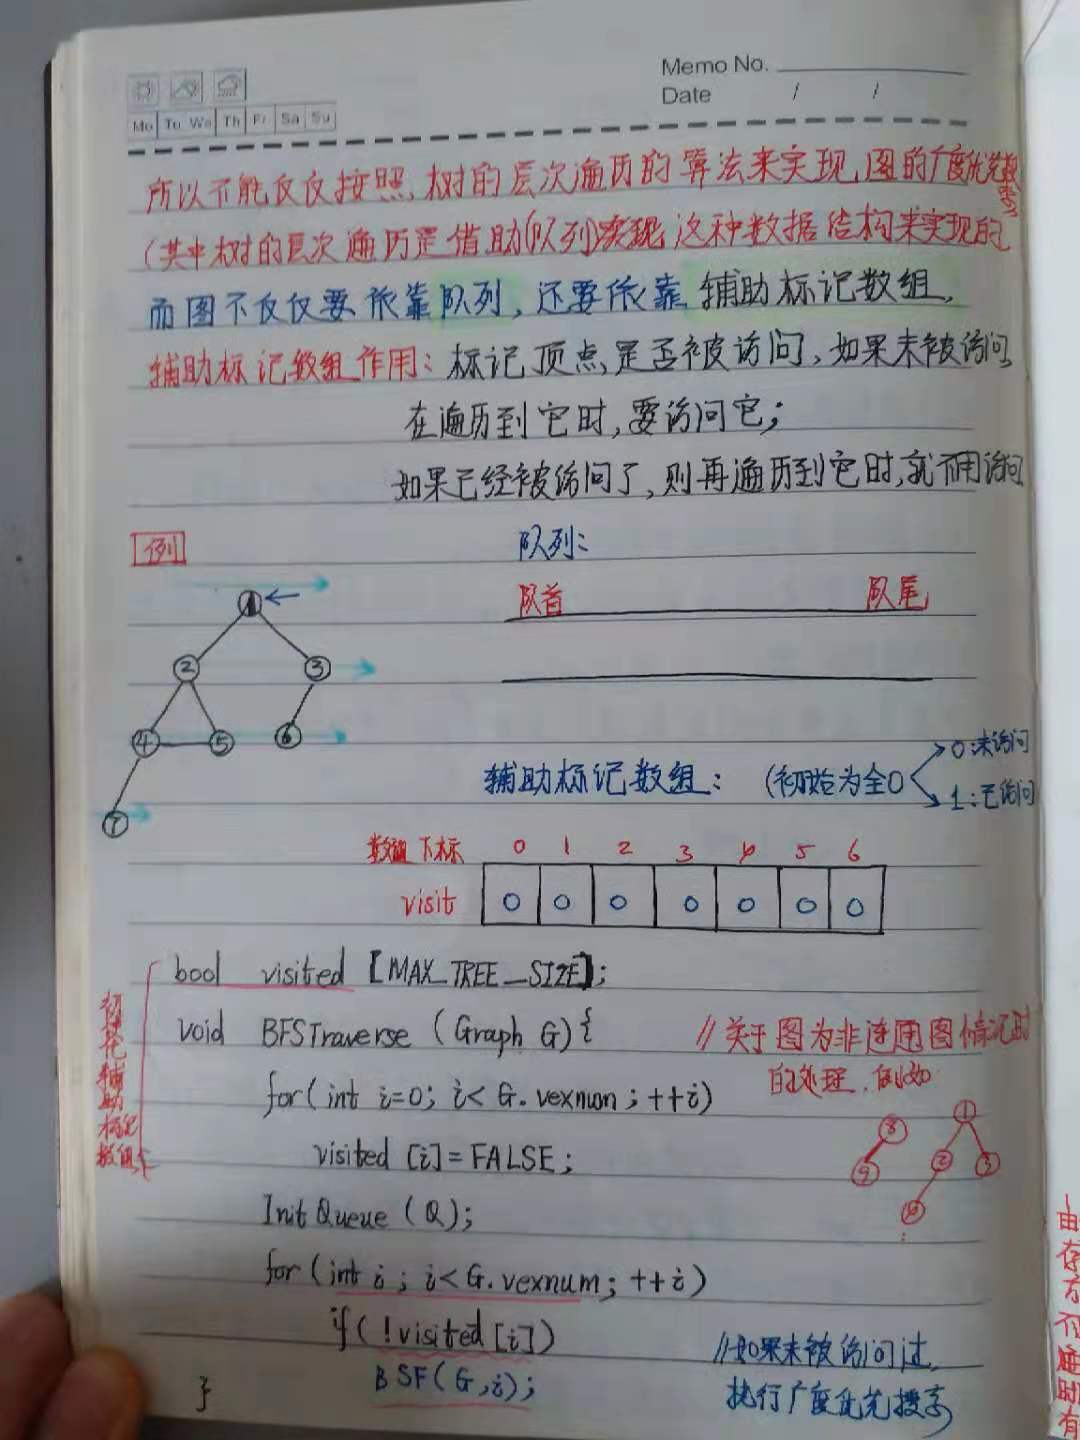 Memo No.
Date / /
Mo Tu We Th Fr Sa Su
所以不能仅仅按照树的层次遍历的算法来实现图的广度优先搜索
(其中树的层次遍历是借助(队列)实现这种数据结构来实现的
而图不仅仅要依靠队列,还要依靠辅助标记数组,
辅助标记数组作用:标记顶点是否被访问,如果未被访问,
在遍历到它时,要访问它;
如果已经被访问了,则再遍历到它时,就不用访问
例
队列:
队首 队尾
1
2 3
4 5 6
7
辅助标记数组: (初始为全0
0:未访问
1:已访问
数组下标 0 1 2 3 4 5 6
visit 0 0 0 0 0 0 0
初始化辅助标记数组
bool visited [MAX_TREE_SIZE];
void BFSTraverse (Graph G){ //关于图为非连通图情况时
的处理.例如
for(int i=0; i< G.vexnum; ++i)
visited [i]=FALSE;
InitQueue (Q);
for (int i; i<G.vexnum; ++i)
if(!visited[i])
BSF(G,i);
//如果未被访问过,
执行广度优先搜索
}
8 1
9 2 3
10
由
存
方
不
时
有